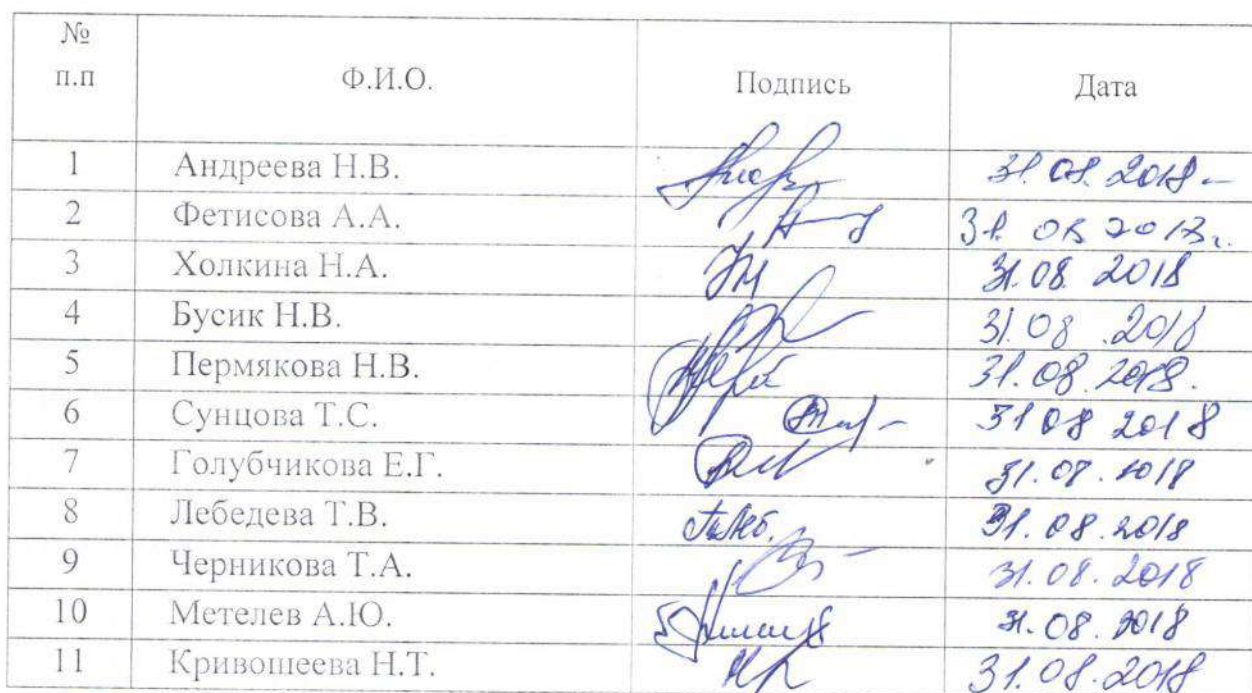 №
п.п Ф.И.О. Подпись Дата
1 Андреева Н.В. 31.08.2018
2 Фетисова А.А. 31.08 2018г.
3 Холкина Н.А. 31.08. 2018
4 Бусик Н.В. 31.08 .2018
5 Пермякова Н.В. 31.08.2018.
6 Сунцова Т.С. 31 08 2018
7 Голубчикова Е.Г. 31.08.2018
8 Лебедева Т.В. 31.08.2018
9 Черникова Т.А. 31.08.2018
10 Метелев А.Ю. 31.08.2018
11 Кривошеева Н.Т. 31.08.2018